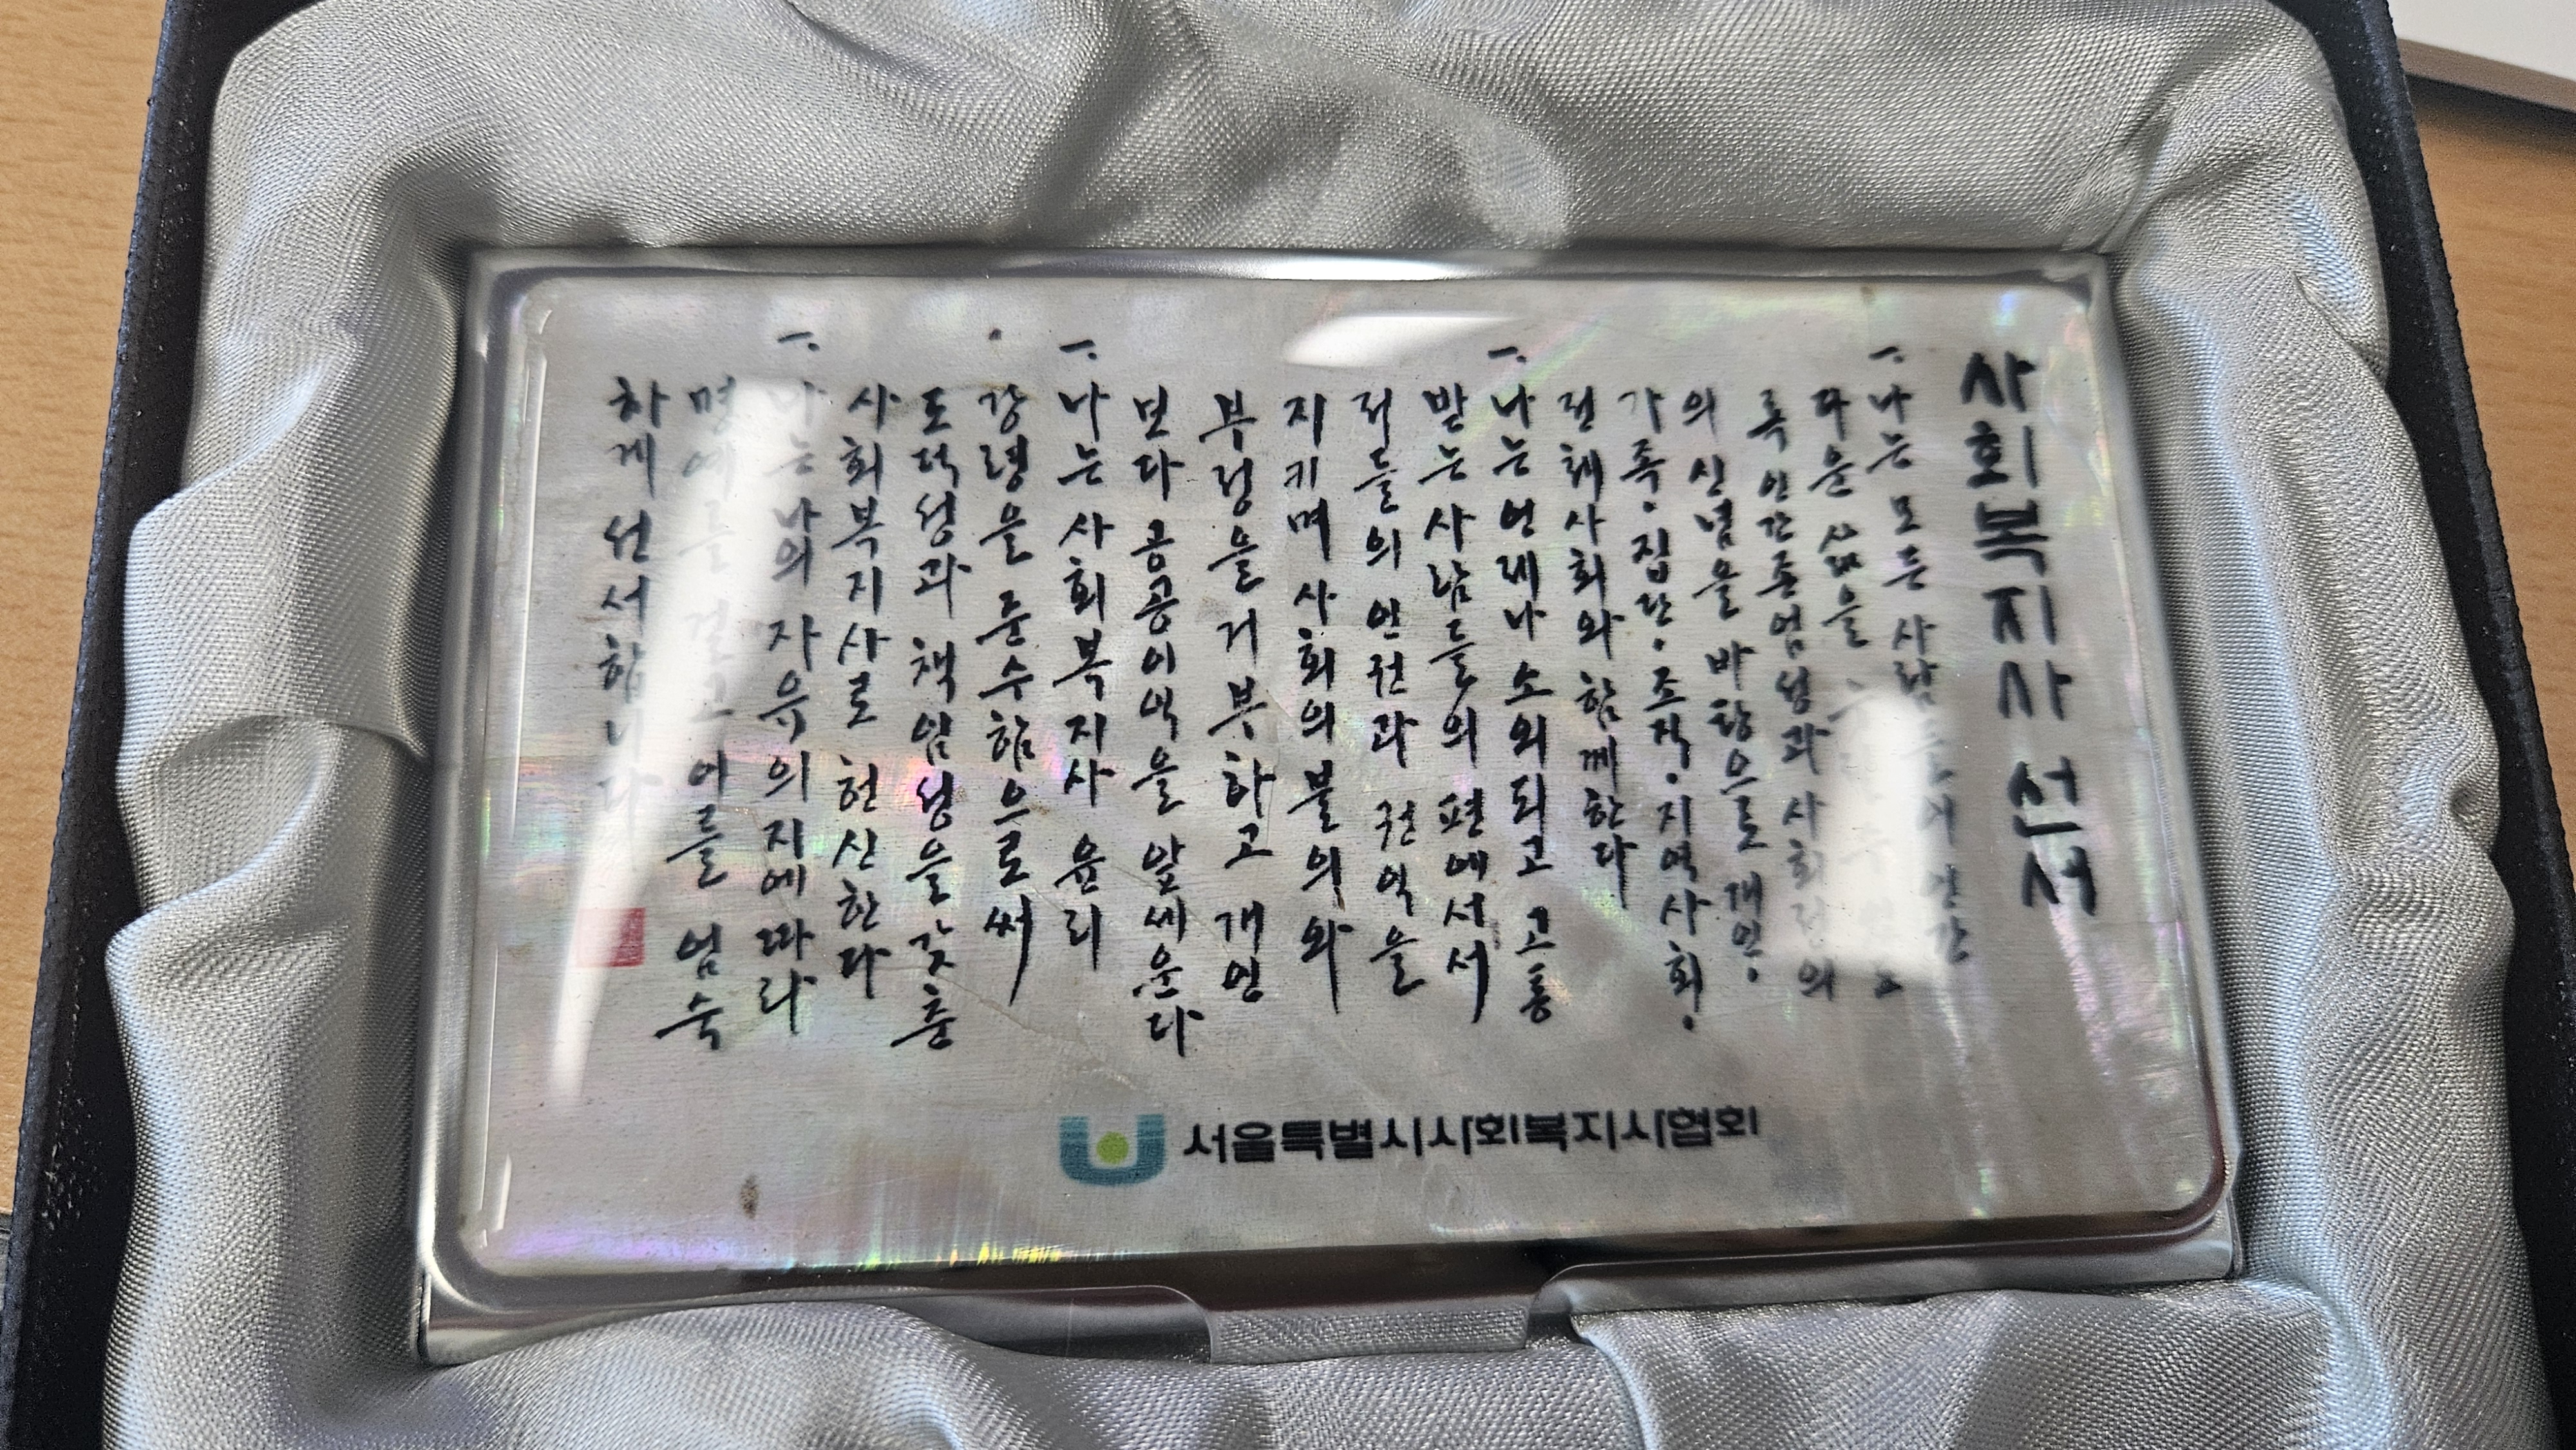 사회복지사 선서
一. 나는 모든 사람들이 인간
다운 삶을
록 인간존엄성과 사회정의
의 신념을 바탕으로 개인.
가족. 집단. 조직. 지역사회.
전체사회와 함께한다
一. 나는 언제나 소외되고 고통
받는 사람들의 편에서서
저들의 인권과 권익을
지키며 사회의 불의와
부정을 거부하고 개인
보다 공공이익을 앞세운다
一. 나는 사회복지사 윤리
강령을 준수함으로써
도덕성과 책임성을 갖춘
사회복지사로 헌신한다
一. 나는 나의 자유의지에 따라
명예를 걸고 이를 엄숙
하게 선서합니다
서울특별시사회복지사협회